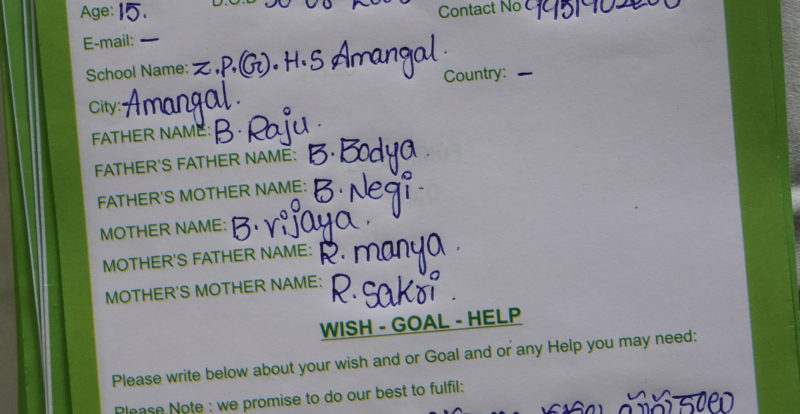 Age: 15.
E-mail: —
School Name: Z.P.(G).H.S Amangal.
Country: —
City: Amangal.
FATHER NAME: B. Raju.
FATHER'S FATHER NAME: B. Bodya.
FATHER'S MOTHER NAME: B. Negi.
MOTHER NAME: B. vijaya.
MOTHER'S FATHER NAME: R. manya.
MOTHER'S MOTHER NAME: R. sakri.
WISH - GOAL - HELP
Please write below about your wish and or Goal and or any Help you may need:
Please Note : we promise to do our best to fulfil: